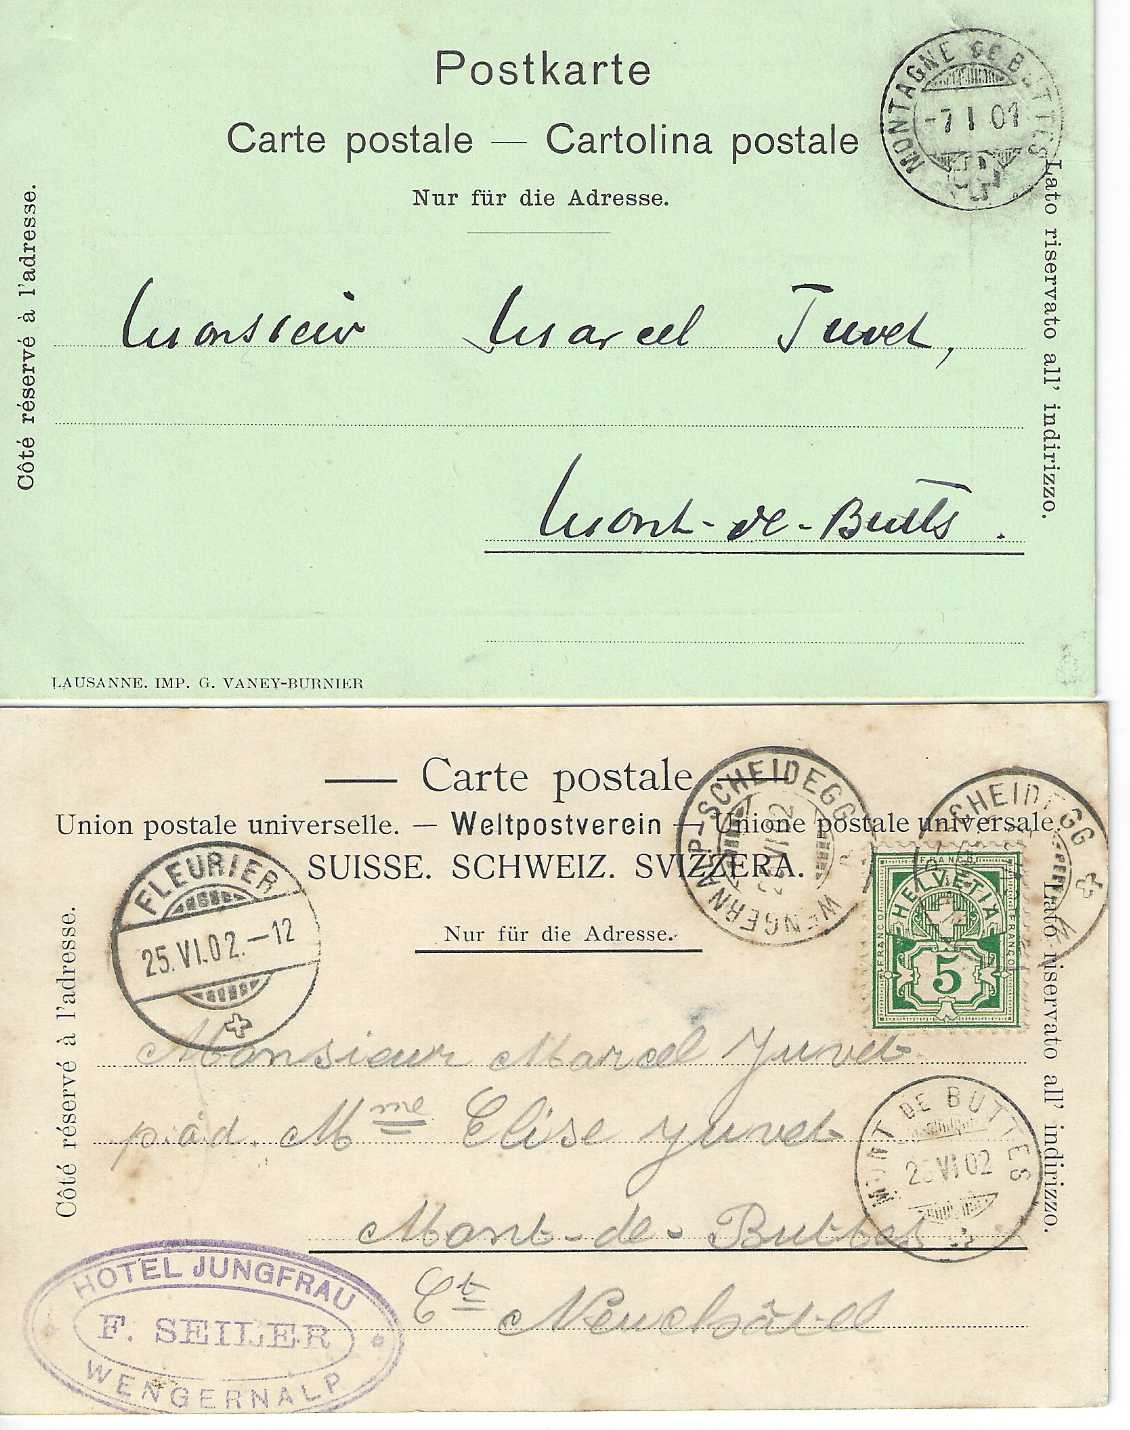 Postkarte
Carte postale — Cartolina postale
Nur für die Adresse.
MONTAGNE DE BUTTES
-7 I 01
Côté réservé à l'adresse.
Lato riservato all' indirizzo.
Monsieur Marcel Juvet,
Mont-de-Buttes.
LAUSANNE. IMP. G. VANEY-BURNIER
— Carte postale —
Union postale universelle. — Weltpostverein — Unione postale universale.
SUISSE. SCHWEIZ. SVIZZERA.
Nur für die Adresse.
WENGERNALP-SCHEIDEGG
VI 02
SCHEIDEGG
FLEURIER
25.VI.02.-12
FRANCO
HELVETIA
FRANCO FRANCO
5
Côté réservé à l'adresse.
Lato riservato all' indirizzo.
Monsieur Marcel Juvet
p. ad. Mme Elise Juvet
Mont-de-Buttes
Ct Neuchâtel
MONT DE BUTTES
VI 02
HOTEL JUNGFRAU
F. SEILER
WENGERNALP